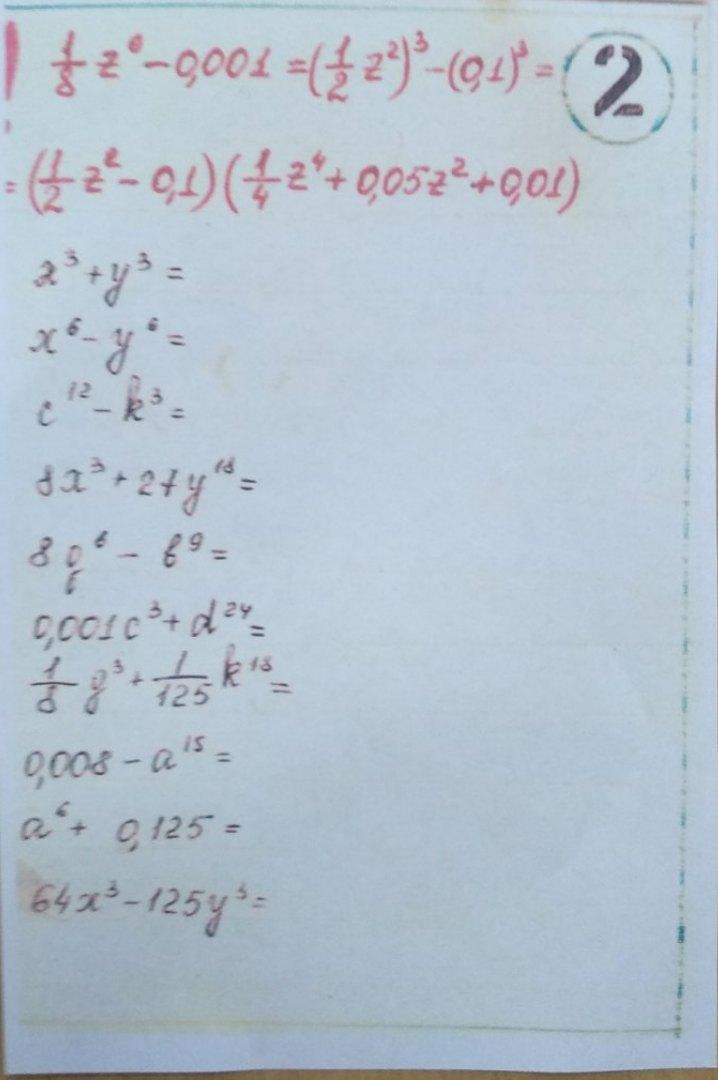 1/8 z⁶ - 0,001 = (1/2 z²)³ - (0,1)³ =
2
= (1/2 z² - 0,1)(1/4 z⁴ + 0,05z² + 0,01)
x³ + y³ =
x⁶ - y⁶ =
c¹² - k³ =
8x³ + 27y¹⁸ =
8 ⁶ - b⁹ =
0,001c³ + d²⁴ =
1/8 g³ + 1/125 k¹⁸ =
0,008 - a¹⁵ =
a⁶ + 0,125 =
64x³ - 125y³ =